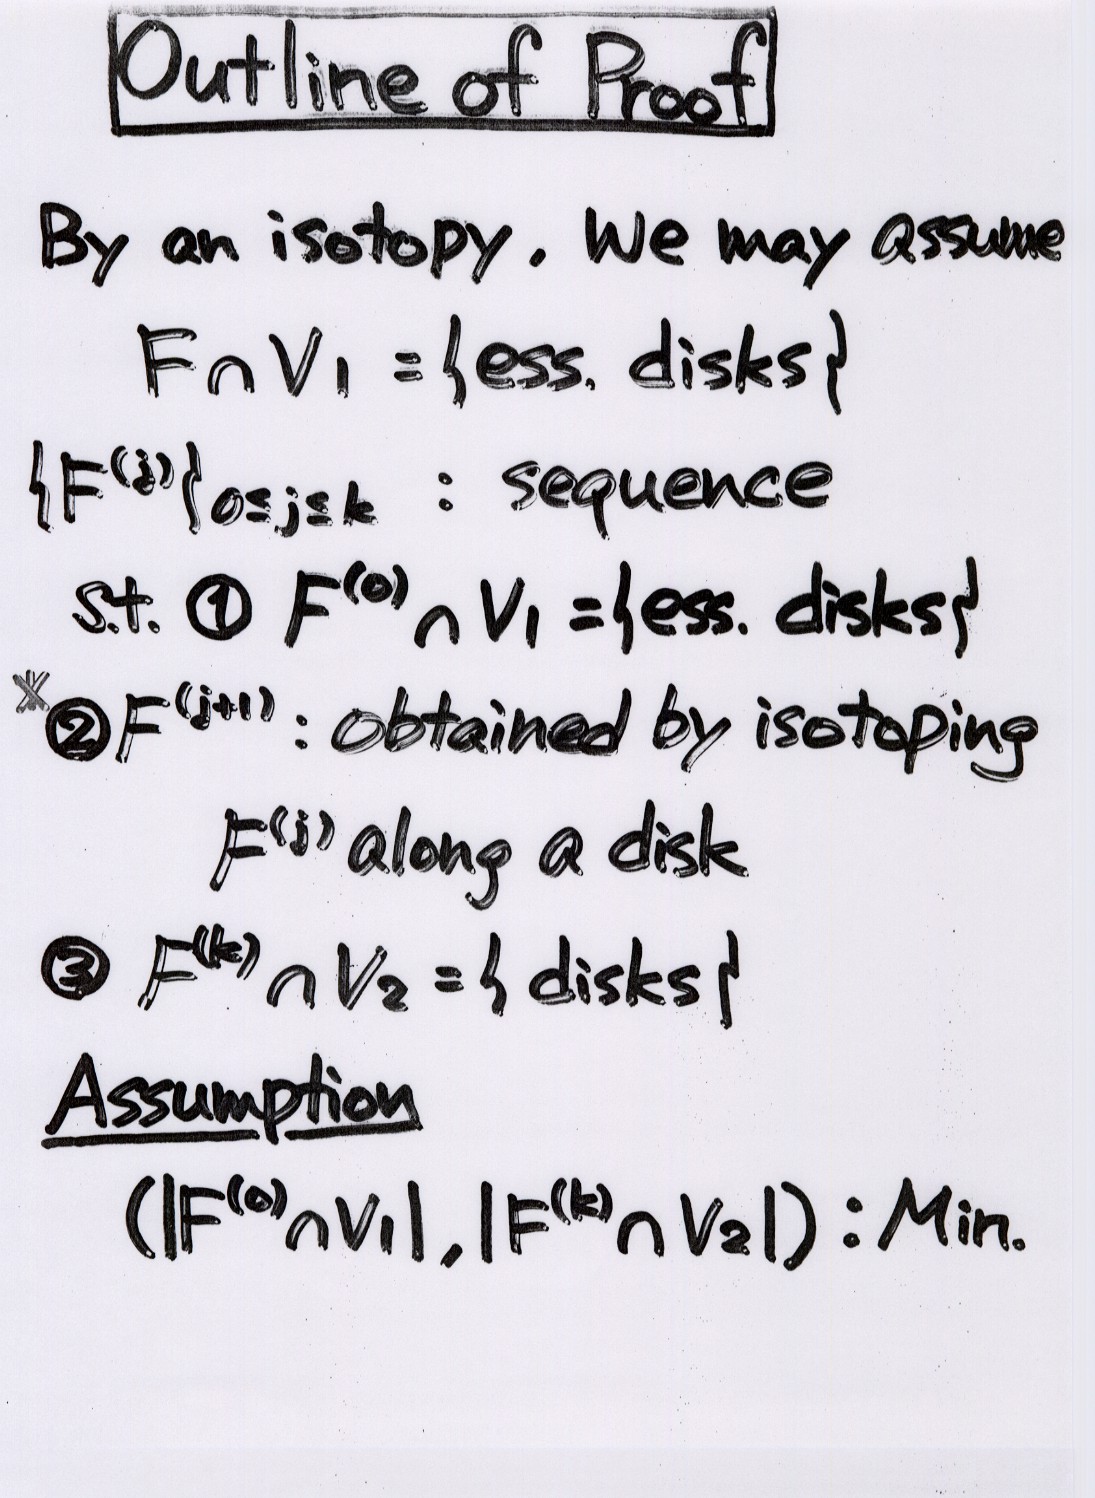 Outline of Proof
By an isotopy. We may assume
F∩V₁ = {ess. disks}
{F⁽ʲ⁾}₀≤ⱼ≤ₖ : sequence
s.t. ① F⁽⁰⁾∩V₁ = {ess. disks}
※②F⁽ʲ⁺¹⁾ : obtained by isotoping
F⁽ʲ⁾ along a disk
③ F⁽ᵏ⁾∩V₂ = {disks}
Assumption
(|F⁽⁰⁾∩V₁|, |F⁽ᵏ⁾∩V₂|) : Min.